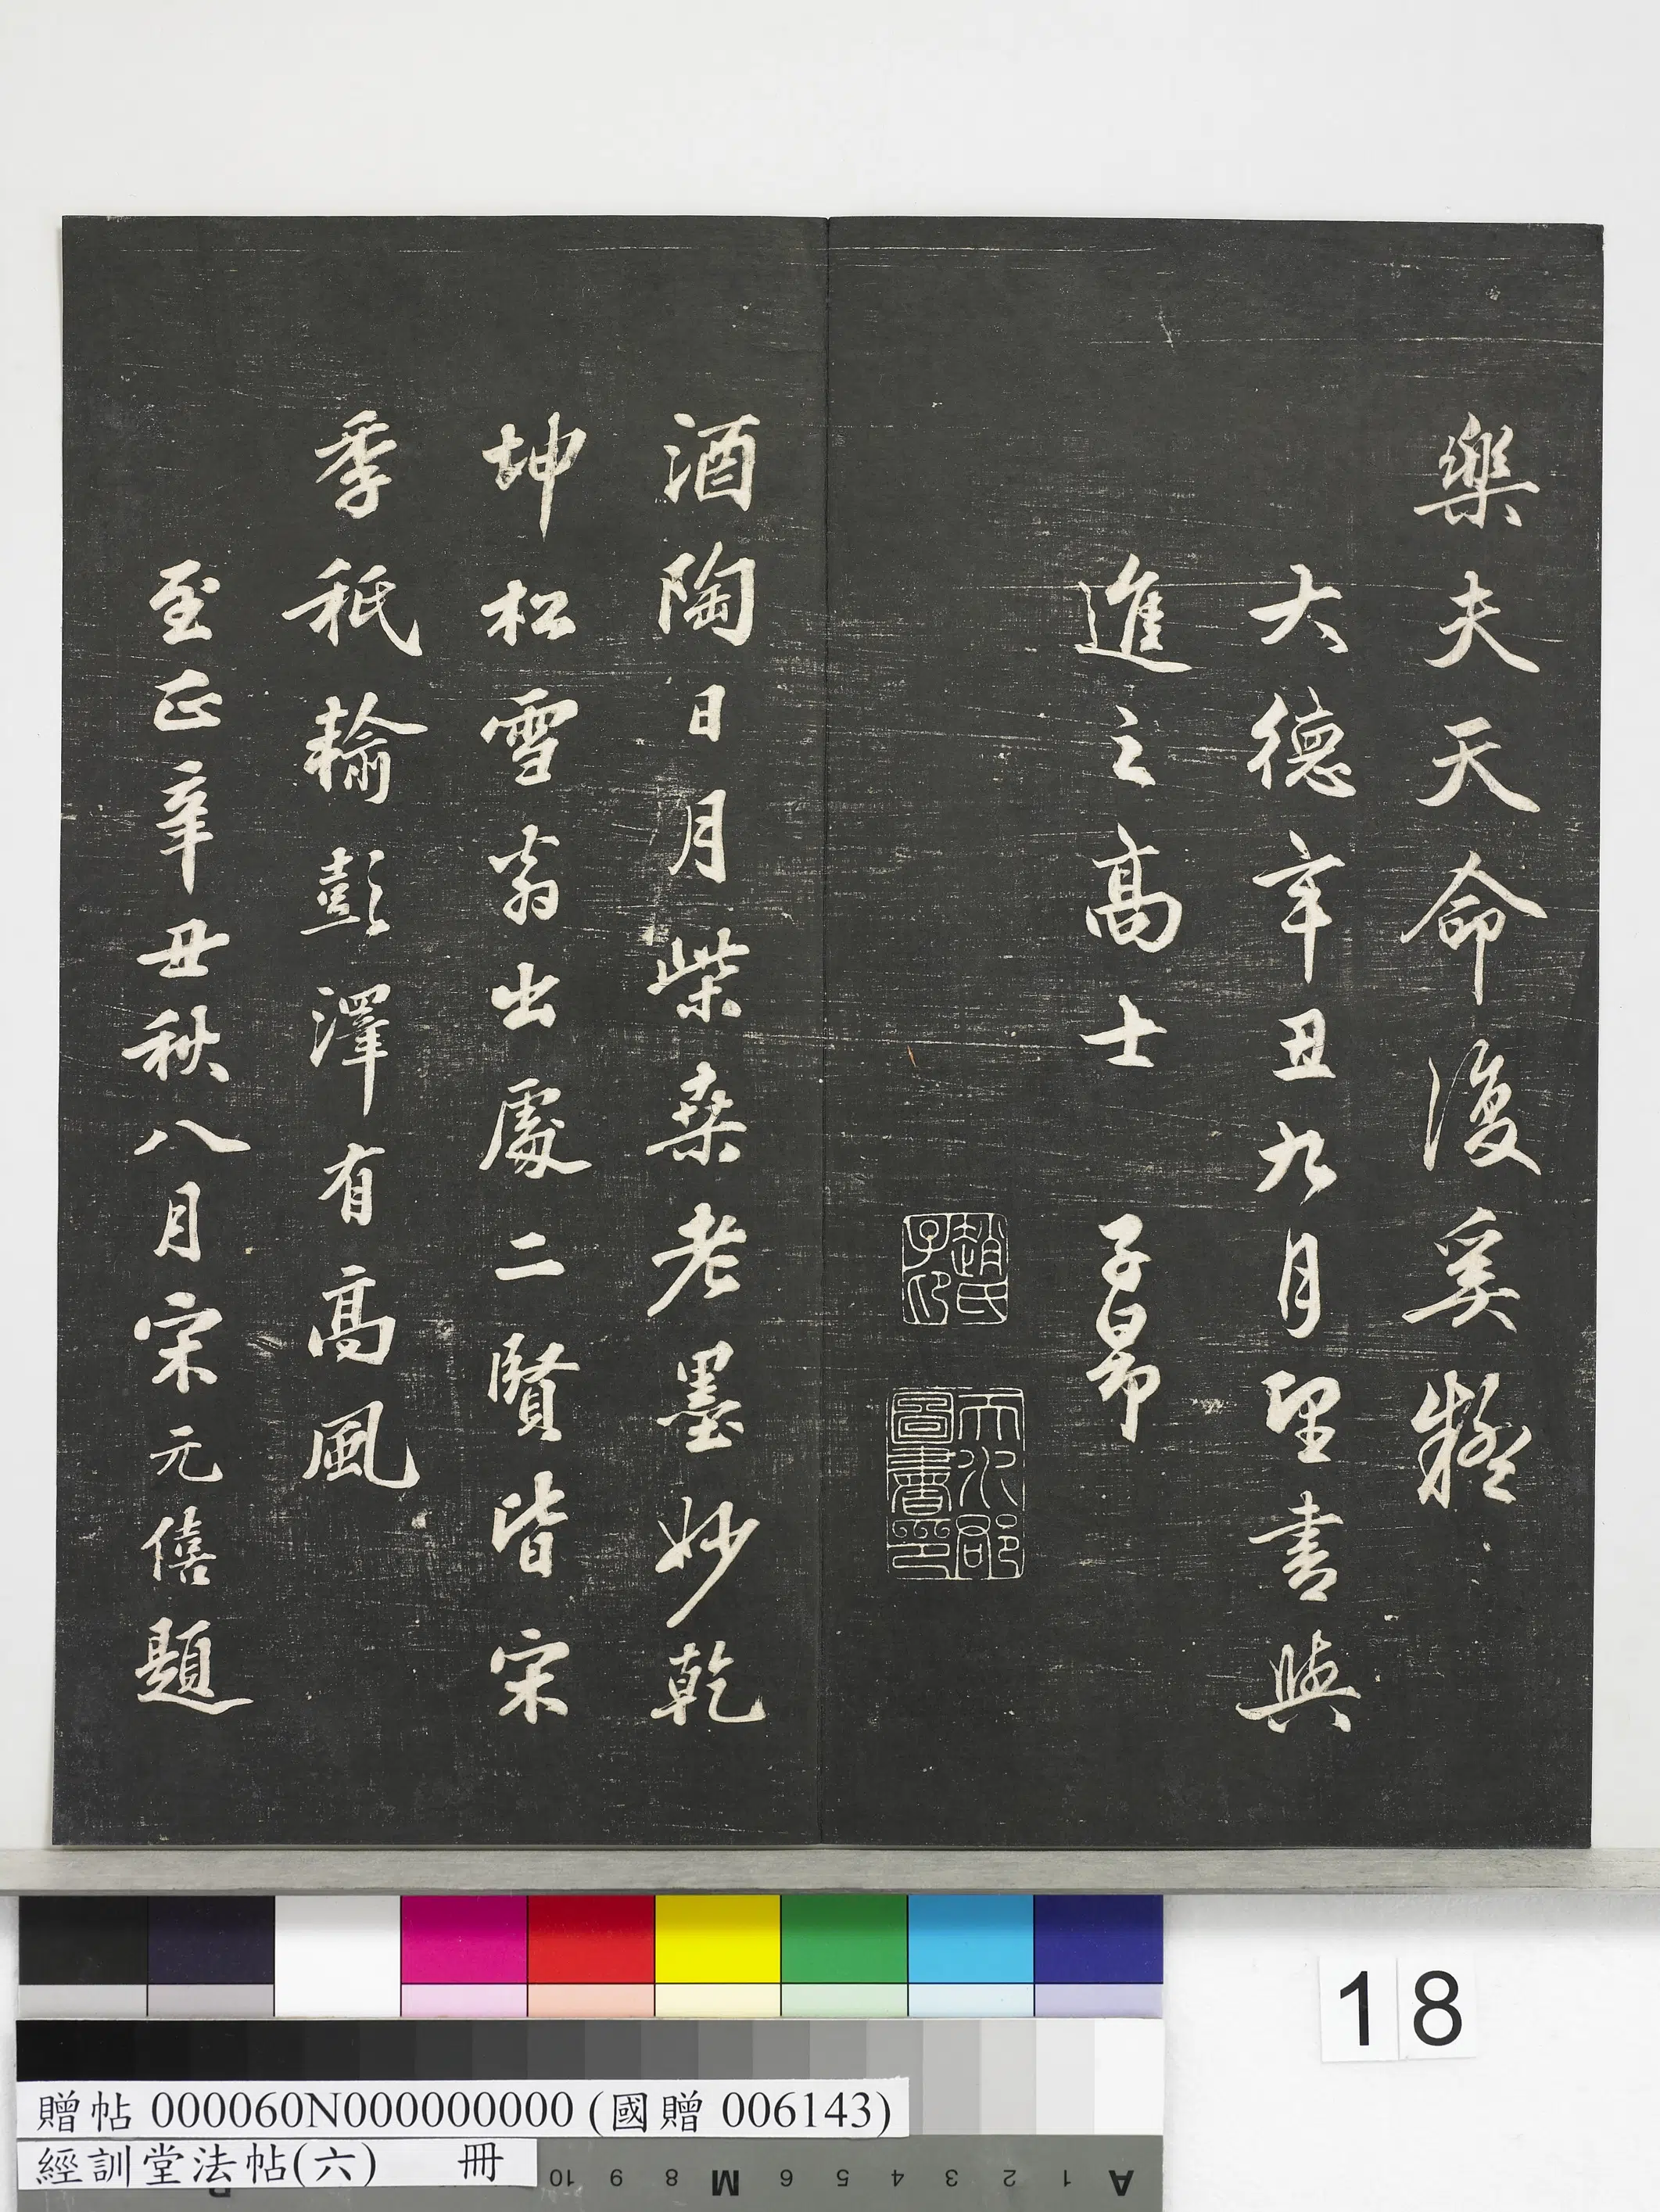 樂夫天命復奚疑
大德辛丑九月望書與
進之高士 子昂
趙氏子印
天水郡圖書印
酒陶日月柴桑老墨妙乾
坤松雪翁出處二賢皆宋
季秖輸彭澤有高風
至正辛丑秋八月宋元僖題
18
贈帖 000060N000000000 (國贈 006143)
經訓堂法帖(六) 冊
10 9 8 M 7 6 5 4 3 2 1 A